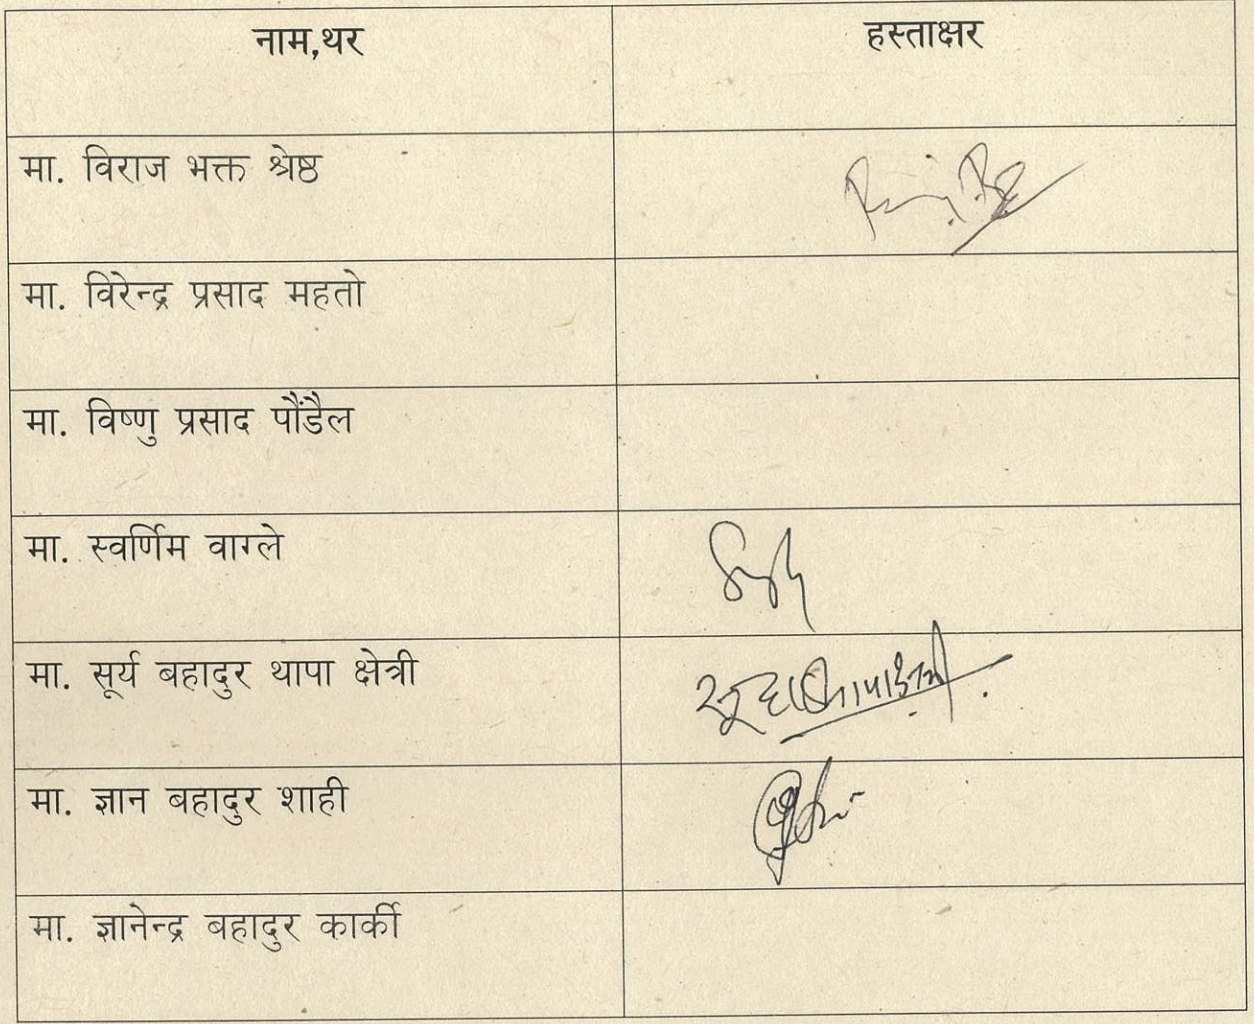 नाम,थर
हस्ताक्षर
मा. विराज भक्त श्रेष्ठ
मा. विरेन्द्र प्रसाद महतो
मा. विष्णु प्रसाद पौंडैल
मा. स्वर्णिम वाग्ले
मा. सूर्य बहादुर थापा क्षेत्री
मा. ज्ञान बहादुर शाही
मा. ज्ञानेन्द्र बहादुर कार्की